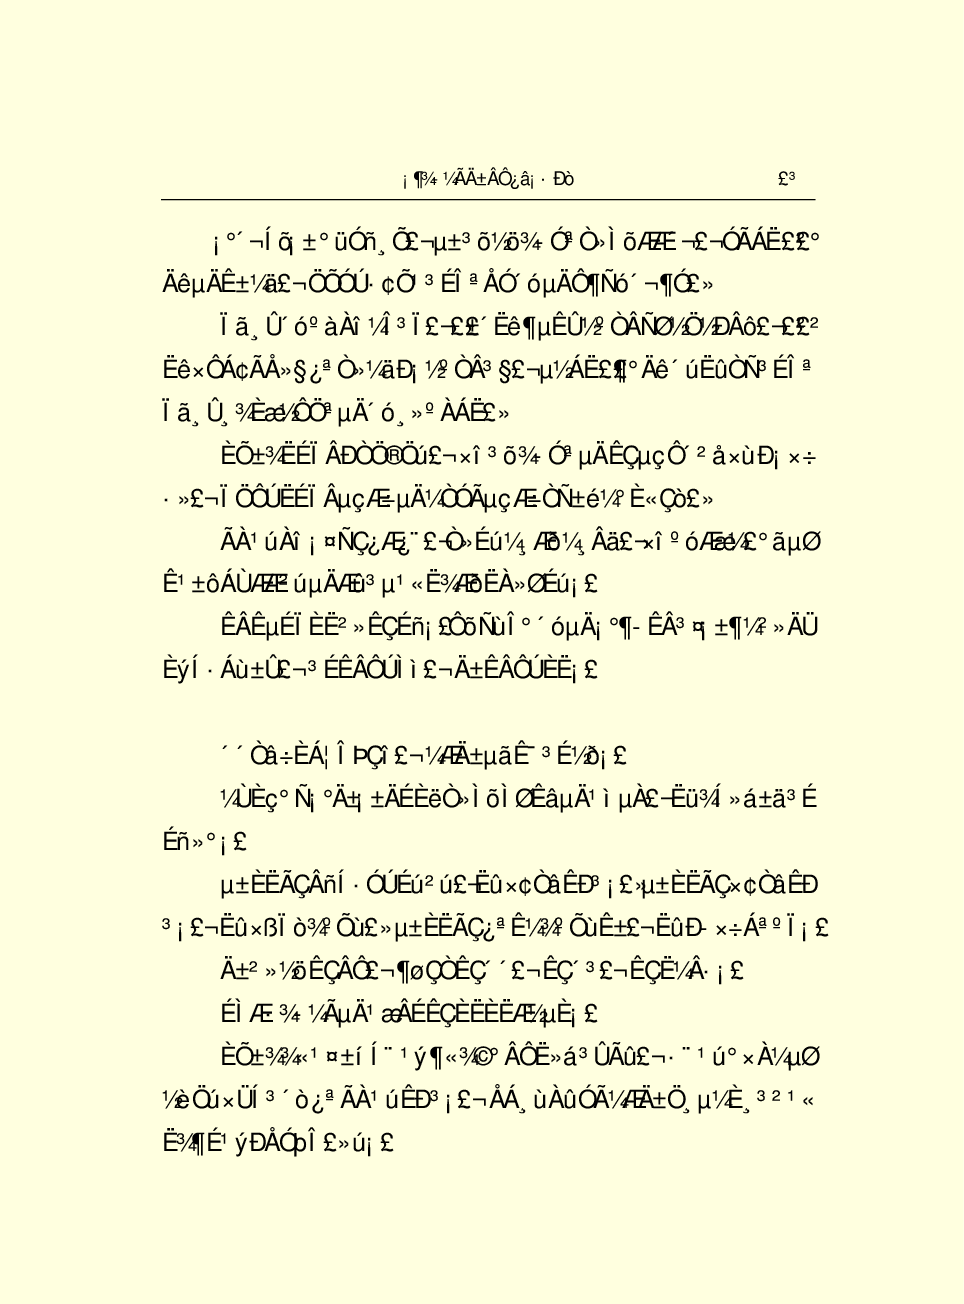 ¡¶¾-¼ÃÄ±ÂÔ¿â¡·Ðò £³
¡°´¬Íõ¡±°üÓñ¸Õ£¬µ±³õ½ö¾-ÓªÒ»ÌõÆÆ´¬£¬ÓÃÁË£²£°
ÄêµÄÊ±¼ä£¬ÖÕÓÚ·¢Õ¹³ÉÎªÅÓ´óµÄÔ¶Ñó´¬¶Ó£»
Ïã¸Û´óºàÀî¼Î³Ï£¬£±£´Ëê¶µÊÛ½ºÒÂÑØ½Ö½ÐÂô£¬£²£²
Ëê×ÔÁ¢ÃÅ»§¿ªÒ»¼äÐ¡½ºÒÂ³§£¬µ½ÁË£¶£°Äê´úËûÒÑ³ÉÎª
Ïã¸Û¸¾Èæ½ÔÖªµÄ´ó¸»ºÀÁË£»
ÈÕ±¾ËÉÏÂÐÒÖ®Öú£¬×î³õ¾-ÓªµÄÊÇµçÔ´²å×ùÐ¡×÷
·»£¬ÏÖÔÚËÉÏÂµçÆ÷µÄ¼ÒÓÃµçÆ÷ÒÑ±é¼°È«Çò£»
ÃÀ¹úÀî¡¤ÑÇ¿Æ¿¨£¬Ò»Éú¼¸Æð¼¸Âä£¬×îºóÆæ¼£°ãµØ
Ê¹±ôÁÙÆÆ²úµÄÆû³µ¹«Ë¾ÆðËÀ»ØÉú¡£
ÊÂÊµÉÏÈË²»ÊÇÉñ¡£ÔõÑùÎ°´óµÄ¡°¶-ÊÂ³¤¡±¶¼²»ÄÜ
ÈýÍ·Áù±Û£¬³ÉÊÂÔÚÌì£¬Ä±ÊÂÔÚÈË¡£
´´Òâ÷ÈÁ¦ÎÞÇî£¬¼ÆÄ±µãÊ¯³É½ð¡£
¼ÙÈç°Ñ¡°Ä±¡±ÄÉÈëÒ»ÌõÌØÊâµÄ¹ìµÀ£¬Ëü¾Í»á±ä³É
Éñ»°¡£
µ±ÈËÃÇÂñÍ·ÓÚÉú²ú£¬Ëû×¢ÒâÊÐ³¡£»µ±ÈËÃÇ×¢ÒâÊÐ
³¡£¬Ëû×ßÏò¾ºÕù£»µ±ÈËÃÇ¿ªÊ¼¾ºÕùÊ±£¬ËûÐ-×÷ÁªºÏ¡£
Ä±²»½öÊÇÂÔ£¬¶øÇÒÊÇ´´£¬ÊÇ´³£¬ÊÇË¼Â·¡£
ÉÌÆ·¾-¼ÃµÄ¹æÂÉÊÇÈËÈËÆ½µÈ¡£
ÈÕ±¾¾«¹¤±íÍ¨¹ý¶«¾©°ÂÔË»á³ÛÃû£¬·¨¹ú°×À¼µØ
½èÖú×ÜÍ³´ò¿ªÃÀ¹úÊÐ³¡£¬ÅÁ¸ùÀûÓÃ¼ÆÄ±Ö¸µ¼È¸³²¹«
Ë¾¶É¹ýÐÅÓþÎ£»ú¡£